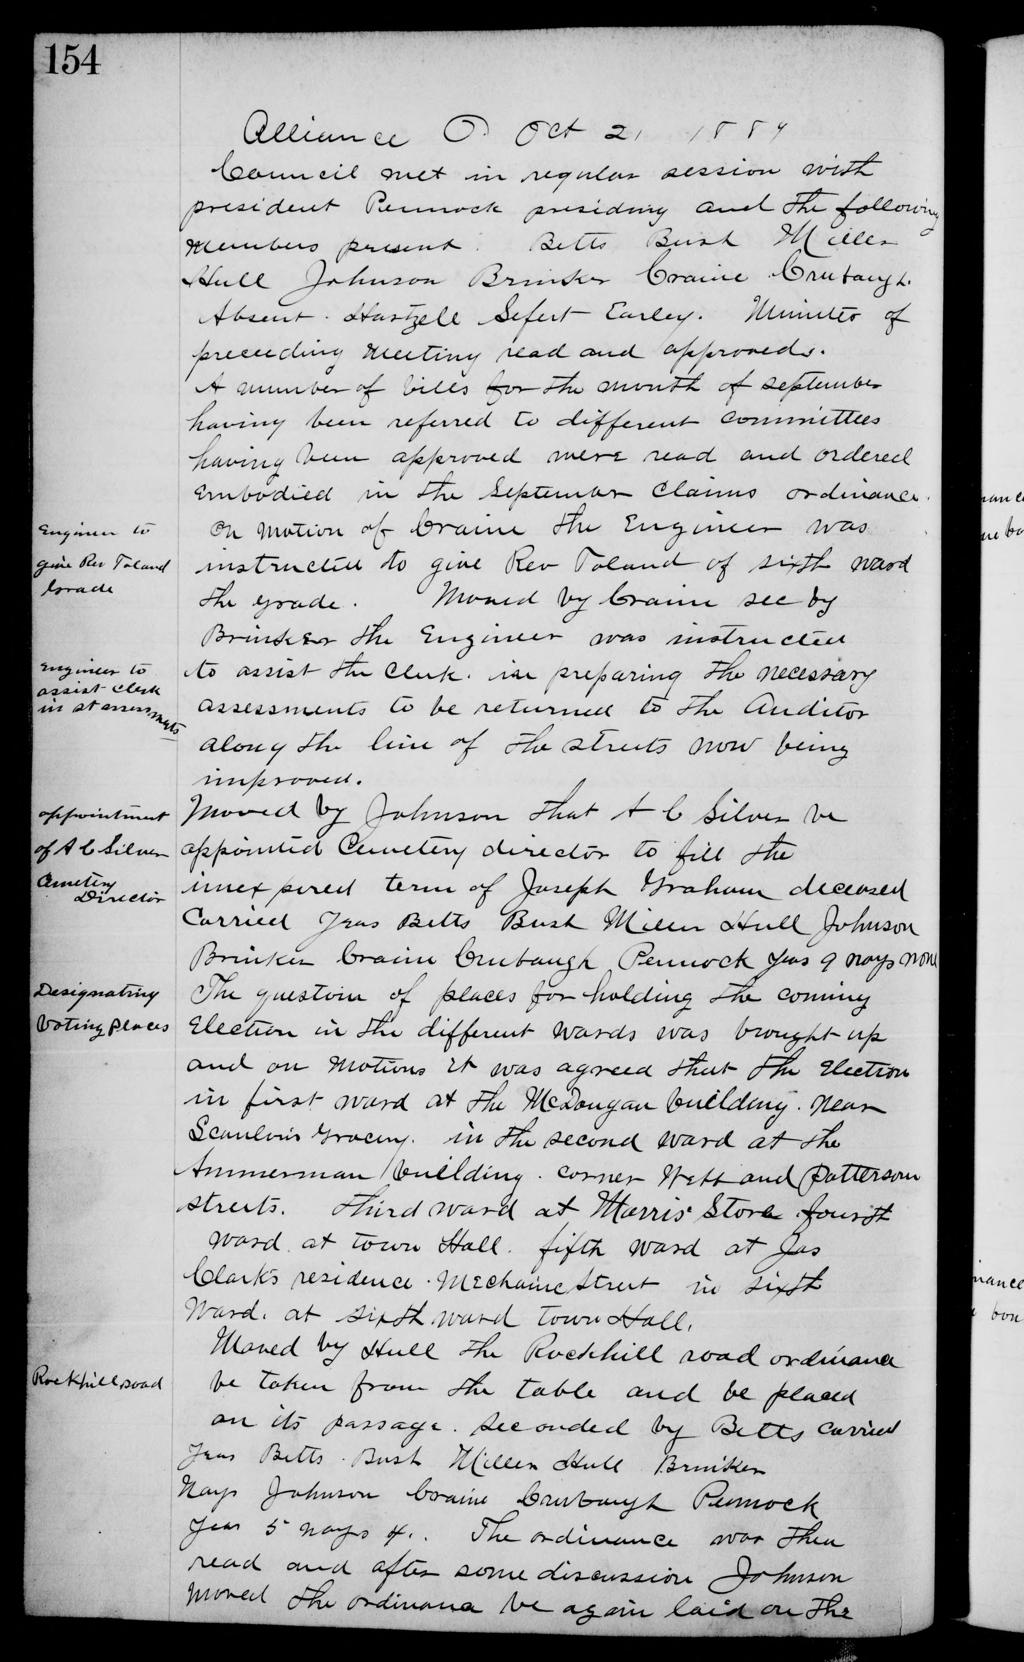 154
Alliance O. Oct 21 1889
Council met in regular session with
president Pennock presiding and the following
members present. Betts Bush Miller
Hull Johnson Brinker Craine Crubaugh.
Absent. Hartzell Sefert Earley. Minutes of
preceeding meeting read and approved.
A number of bills for the month of september
having been referred to different committees
having been approved were read and ordered
Embodied in the September claims ordinance.
Engineer to
give Rev Toland
Grade
On motion of Craine the Engineer was
instructed to give Rev Toland of sixth ward
the grade. Moved by Craine sec by
Brinker the Engineer was instructed
Engineer to
assist clerk
in st assessments
to assist the clerk. in preparing the necessary
assessments to be returned to the Auditor
along the line of the streets now being
improved.
appointment
of A C Silver
Cemetery
Director
Moved by Johnson that A C Silver be
appointed Cemetery director to fill the
unexpired term of Joseph Graham deceased
Carried Yeas Betts Bush Miller Hull Johnson
Brinker Craine Crubaugh Pennock yeas 9 nays none
Designating
Voting places
The question of places for holding the coming
Election in the different wards was brought up
and on motions it was agreed that the Election
in first ward at the McDougan building. near
Scanlons grocery. in the second ward at the
Ammerman building. corner Webb and Patterson
streets. third ward at Morris Store fourth
ward at town Hall. fifth ward at Jas
Clarks residence. Mechanic Street in sixth
Ward. at sixth ward town Hall.
Rockhill road
Moved by Hull the Rockhill road ordinance
be taken from the table and be placed
on its passage. seconded by Betts carried
Yeas Betts. Bush Miller Hull Brinker
Nays Johnson Craine Crubaugh Pennock
Yeas 5 nays 4. The ordinance was then
read and after some discussion Johnson
moved the ordinance be again laid on the